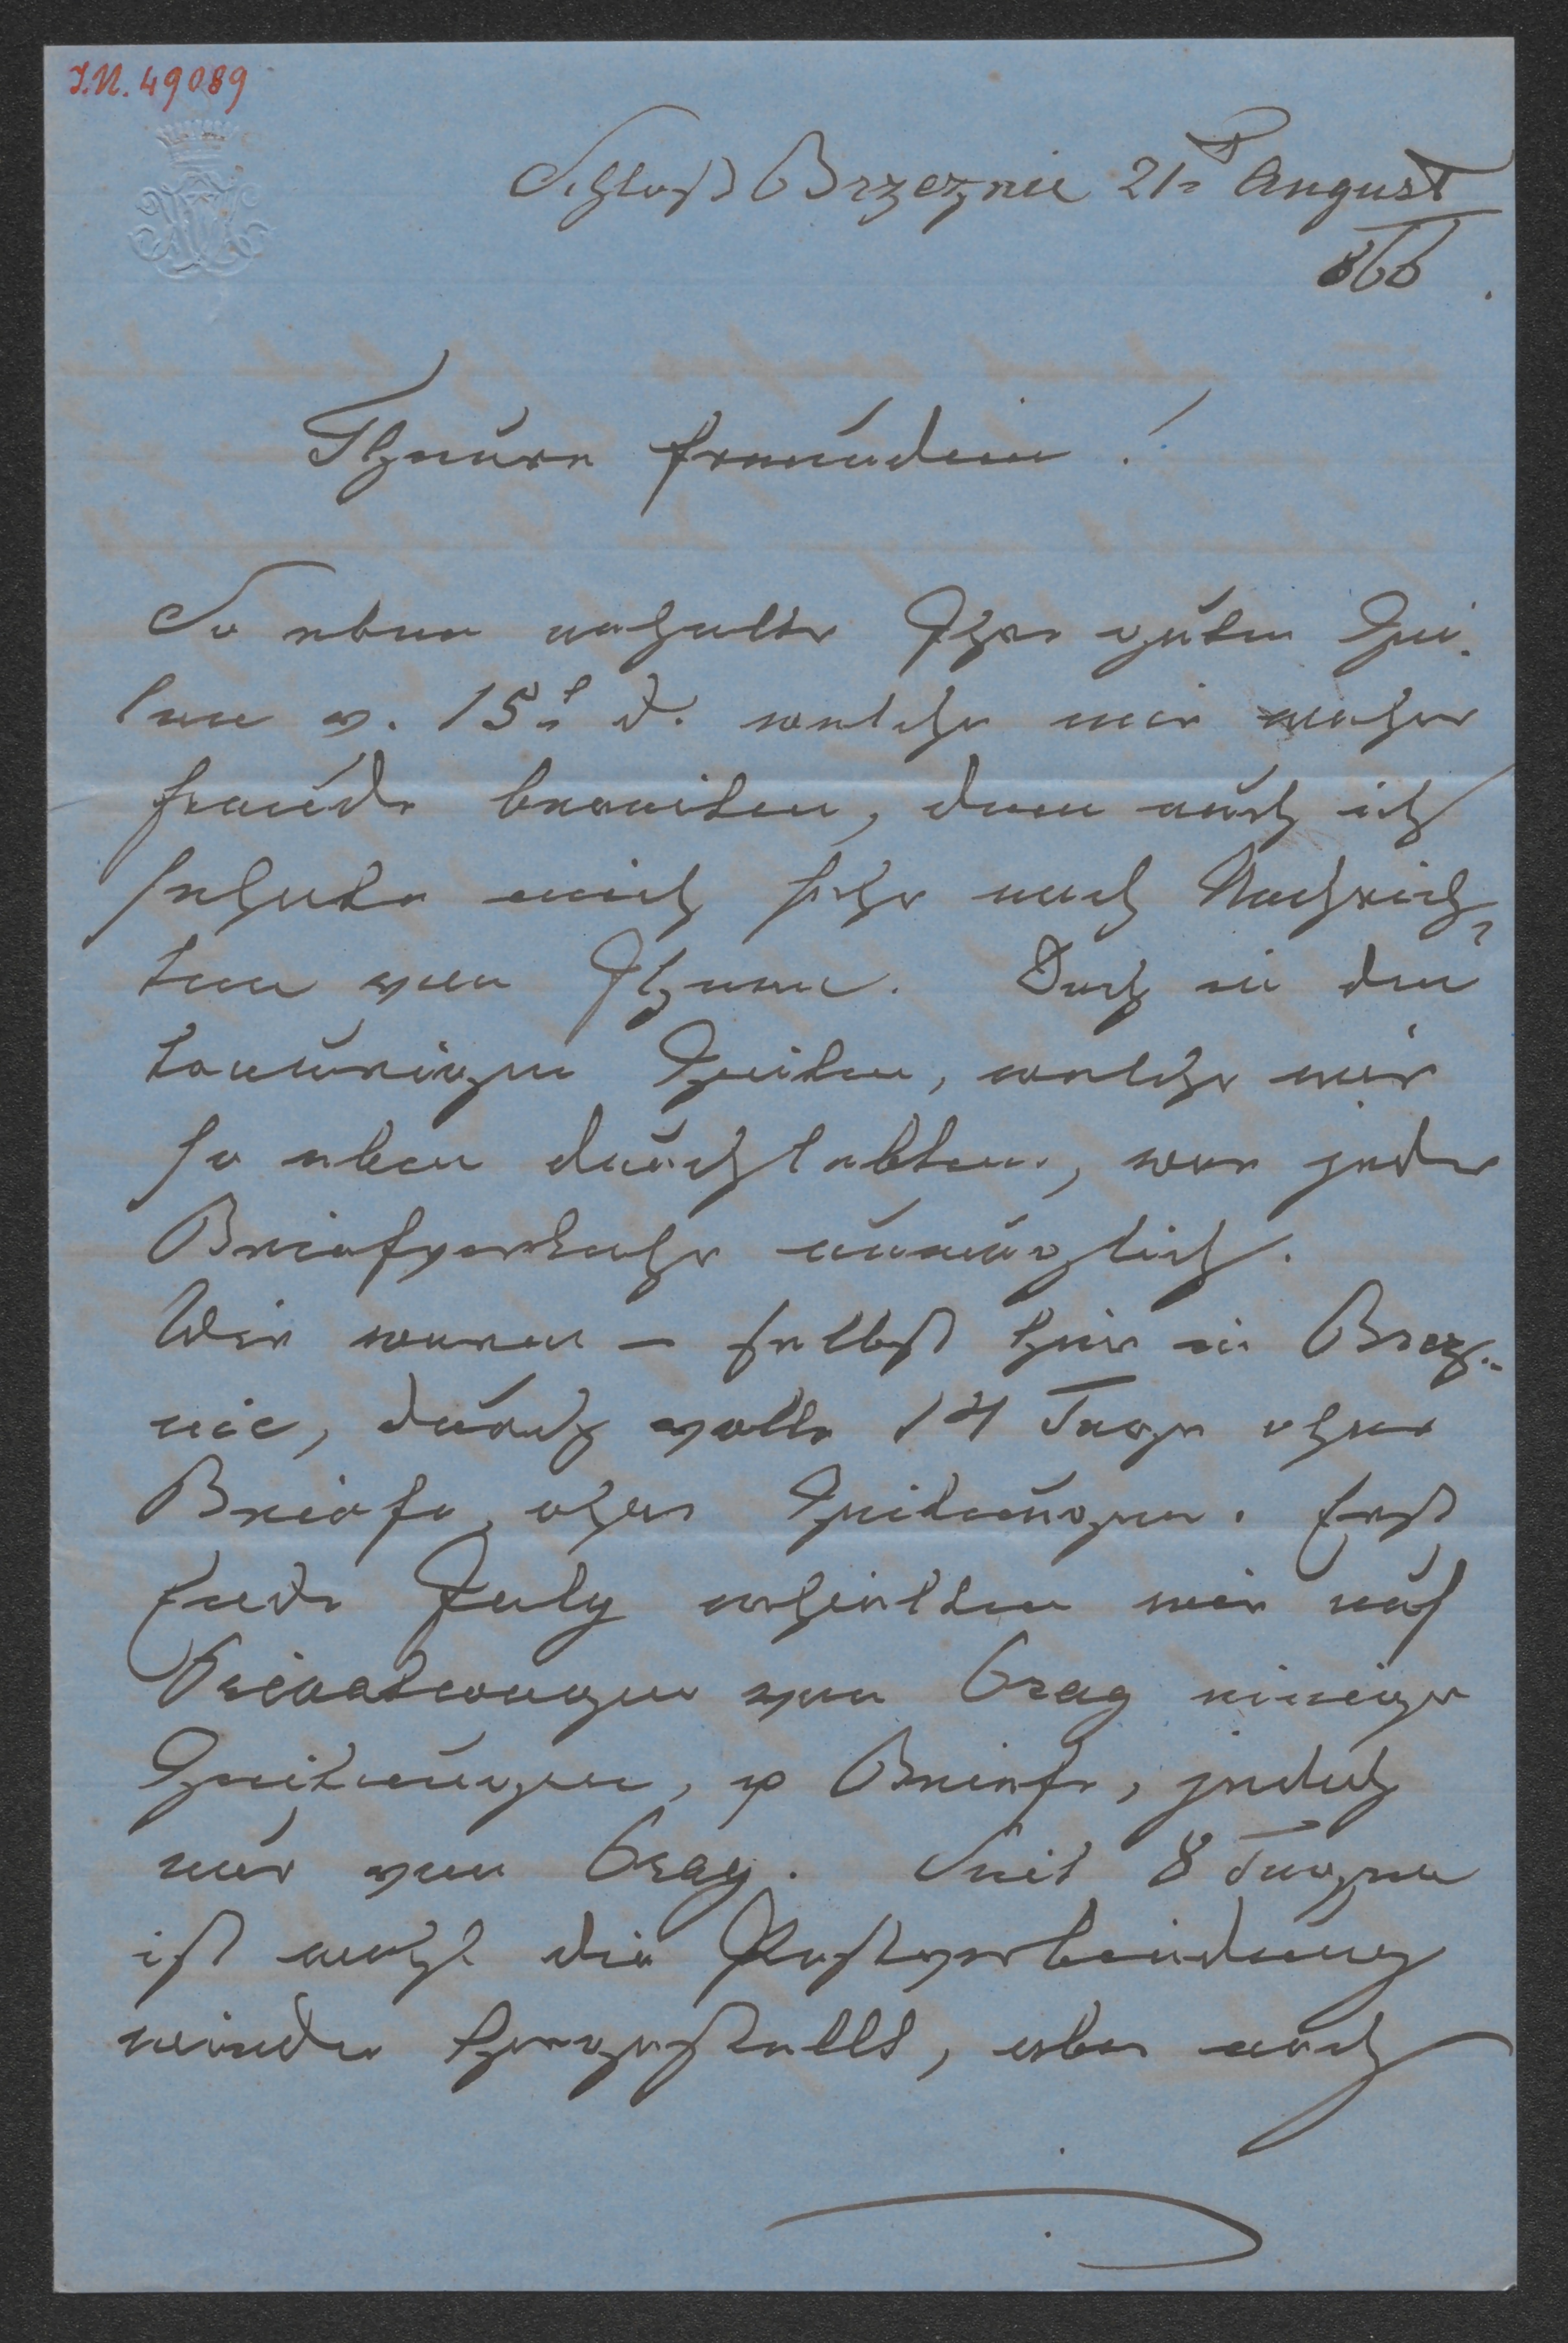 I.N. 49089
Schloß Brzeznic 21t August
866.
Theure Freundin!
So eben erhalte Ihre guten Zei-
len v. 15t d. welche mir wahre
Freude bereiten, denn auch ich
sehnte mich sehr nach Nachrich-
ten von Ihnen. Doch in den
traurigen Zeiten, welche wir
so eben durchlebten, war jeder
Briefverkehr unmöglich.
Wir waren – selbst hier in Brez-
nic, durch volle 14 Tage ohne
Briefe, ohne Zeitungen. Erst
Ende July erhielten wir auf
Privatwegen von Prag einige
Zeitungen, u Briefe, jedoch
nur von Prag. Seit 8 Tagen
ist wohl die Postverbindung
wieder hergestellt, aber noch